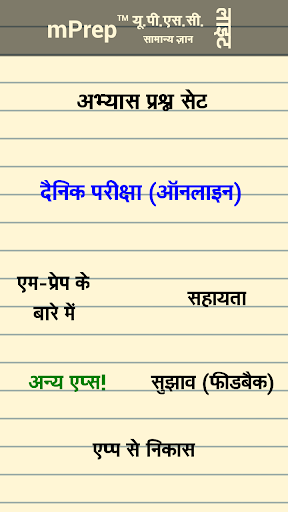 mPrep™ यू.पी.एस.सी.
सामान्य ज्ञान
लाइट
अभ्यास प्रश्न सेट
दैनिक परीक्षा (ऑनलाइन)
एम-प्रेप के
बारे में
सहायता
अन्य एप्स!
सुझाव (फीडबैक)
एप्प से निकास